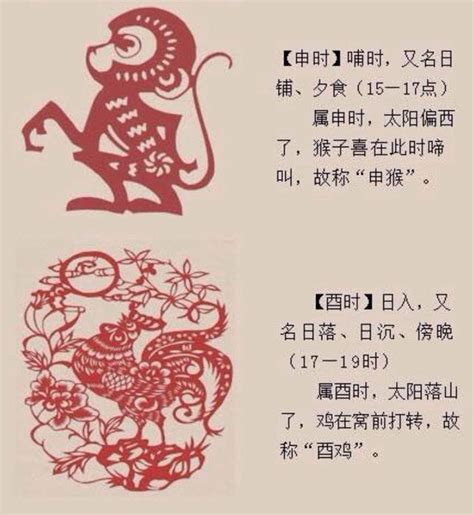 【申时】哺时，又名日
铺、夕食（15—17点）
属申时，太阳偏西
了，猴子喜在此时啼
叫，故称“申猴”。
【酉时】日入，又
名日落、日沉、傍晚
（17—19时）
属酉时，太阳落山
了，鸡在窝前打转，故
称“酉鸡”。